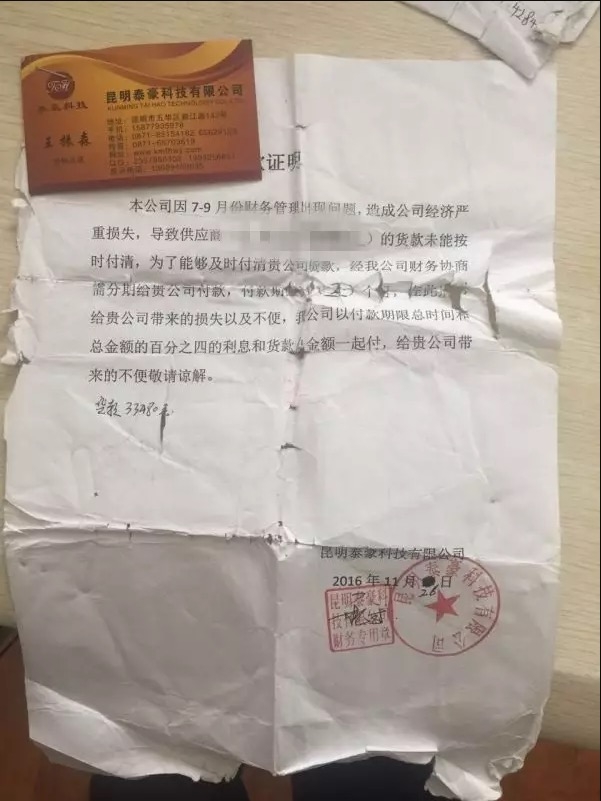 4284
泰豪科技
昆明泰豪科技有限公司
KUNMING TAI HAO TECHNOLOGY CO.,LTD
王振森
地址：昆明市五华区
手机：15877955978
电话：0871-
传真：0871-65703619
款证明
本公司因 7-9 月份财务管理出现问题，造成公司经济严
重损失，导致供应商）的货款未能按
时付清，为了能够及时付清贵公司货款，经我公司财务协商
需分期给贵公司付款，付款期
给贵公司带来的损失以及不便，我公司以付款期限总时间和
总金额的百分之四的利息和货款总金额一起付，给贵公司带
来的不便敬请谅解。
垫款 33480元
昆明泰豪科技有限公司
2016 年 11 月 26 日
昆明泰豪科
技
财务专用章
昆明泰豪科技有限公司